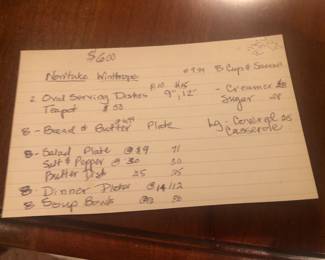 $600
Noritake Winthrope
8 Cup & Saucers
2 Oval Serving Dishes 9", 12"
Teapot $50
- Creamer
Sugar
8 - Bread & Butter Plate
lg. Covered
Casserole
8 - Salad Plate @ $9
Salt & Pepper @ 30
Butter Dish 35
8 - Dinner Plates @ 14/12
8 Soup Bowls